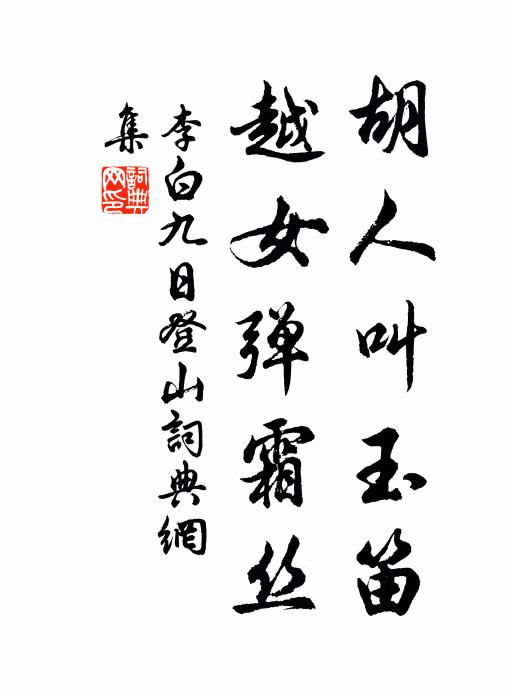 胡人叫玉笛
越女弹霜丝
李白九日登山詞典網
集
詞典
网印